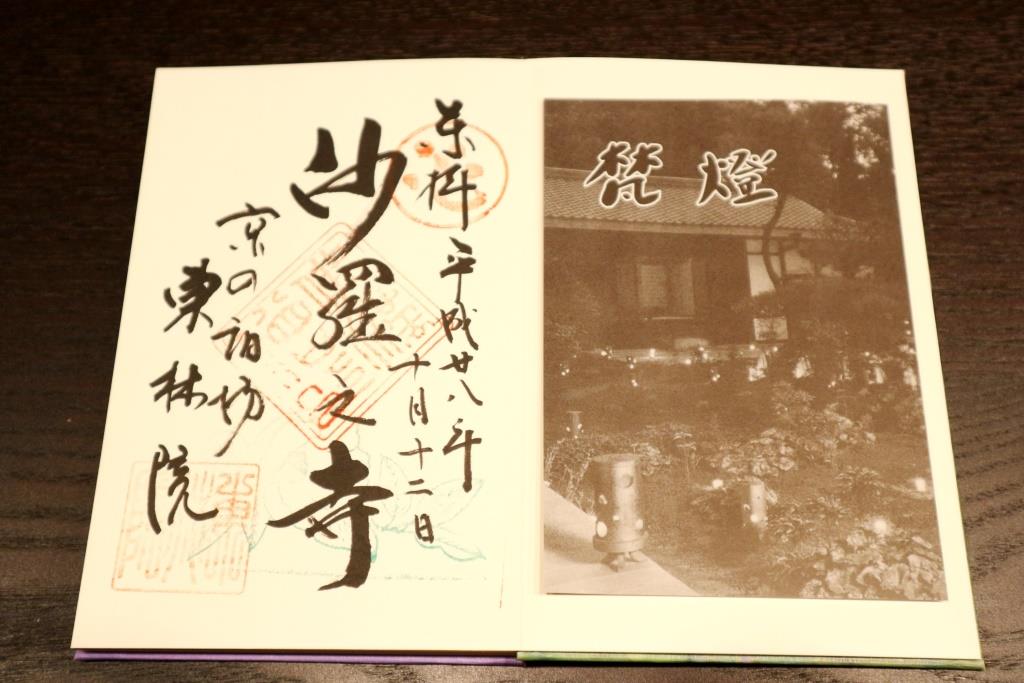 梵燈
奉拝 平成廿八年
十月十二日
沙羅之寺
京の宿坊
東林院